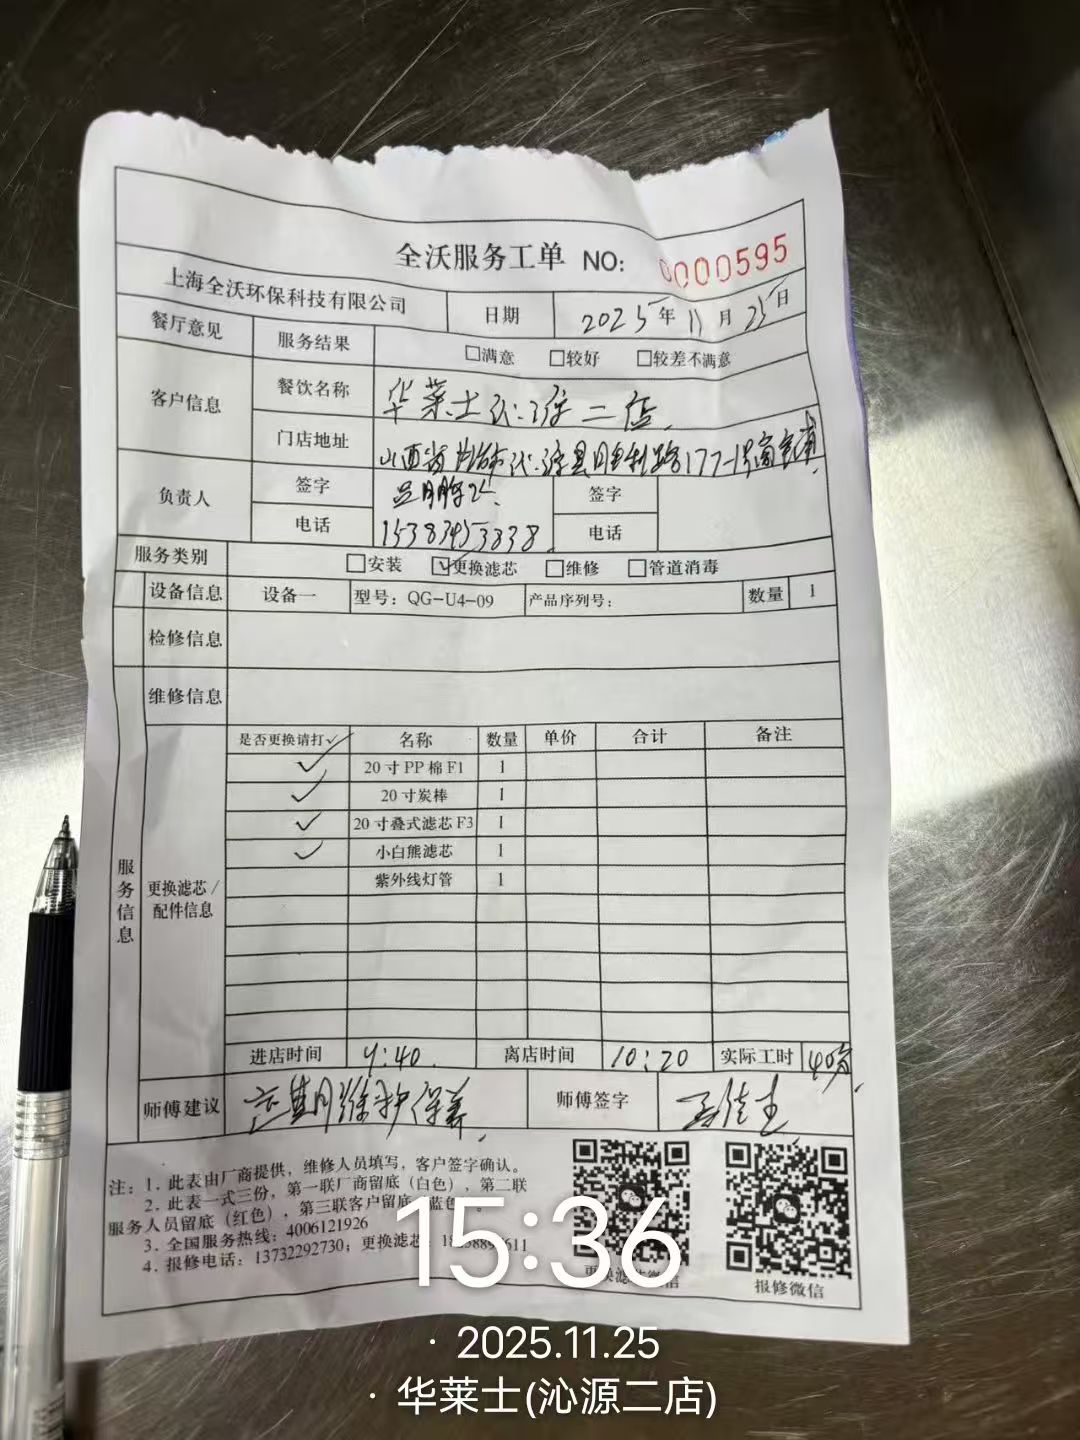 全沃服务工单 NO: 0000595
上海全沃环保科技有限公司 日期 2025年11月25日
餐厅意见 服务结果 □满意 □较好 □较差不满意
客户信息 餐饮名称 华莱士沁源二店
门店地址 山西省长治市沁源县胜利路177-1号商
负责人 签字 签字
电话 15383453838 电话
服务类别 □安装 ☑更换滤芯 □维修 □管道消毒
设备信息 设备一 型号：QG-U4-09 产品序列号： 数量 1
检修信息
维修信息
服务信息
更换滤芯/配件信息
是否更换请打✓ 名称 数量 单价 合计 备注
✓ 20寸PP棉F1 1
✓ 20寸炭棒 1
✓ 20寸叠式滤芯F3 1
✓ 小白熊滤芯 1
紫外线灯管 1
进店时间 9:40 离店时间 10:20 实际工时 40分
师傅建议 定期维护保养 师傅签字
注：1. 此表由厂商提供，维修人员填写，客户签字确认。
2. 此表一式三份，第一联厂商留底（白色），第二联
服务人员留底（红色），第三联客户留底（蓝色）。
3. 全国服务热线：4006121926
4. 报修电话：13732292730；更换滤芯
更换滤芯微信
报修微信
15:36
· 2025.11.25
· 华莱士(沁源二店)